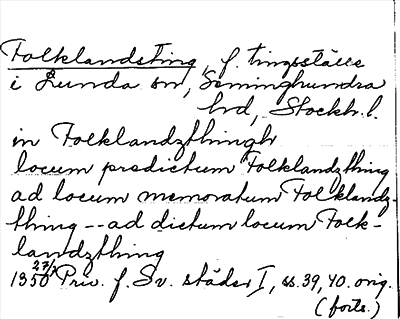 Folklandsting, f. tingsställe
i Lunda sn, Seminghundra
hrd, Stockh. l.
in Folklandzthingh
locum predictum Folklandzthing
ad locum memoratum Folklandz-
thing -- ad dictum locum Folk-
landzthing
1350 27/7 Priv. f. Sv. städer I, ss. 39, 40. orig.
(forts.)